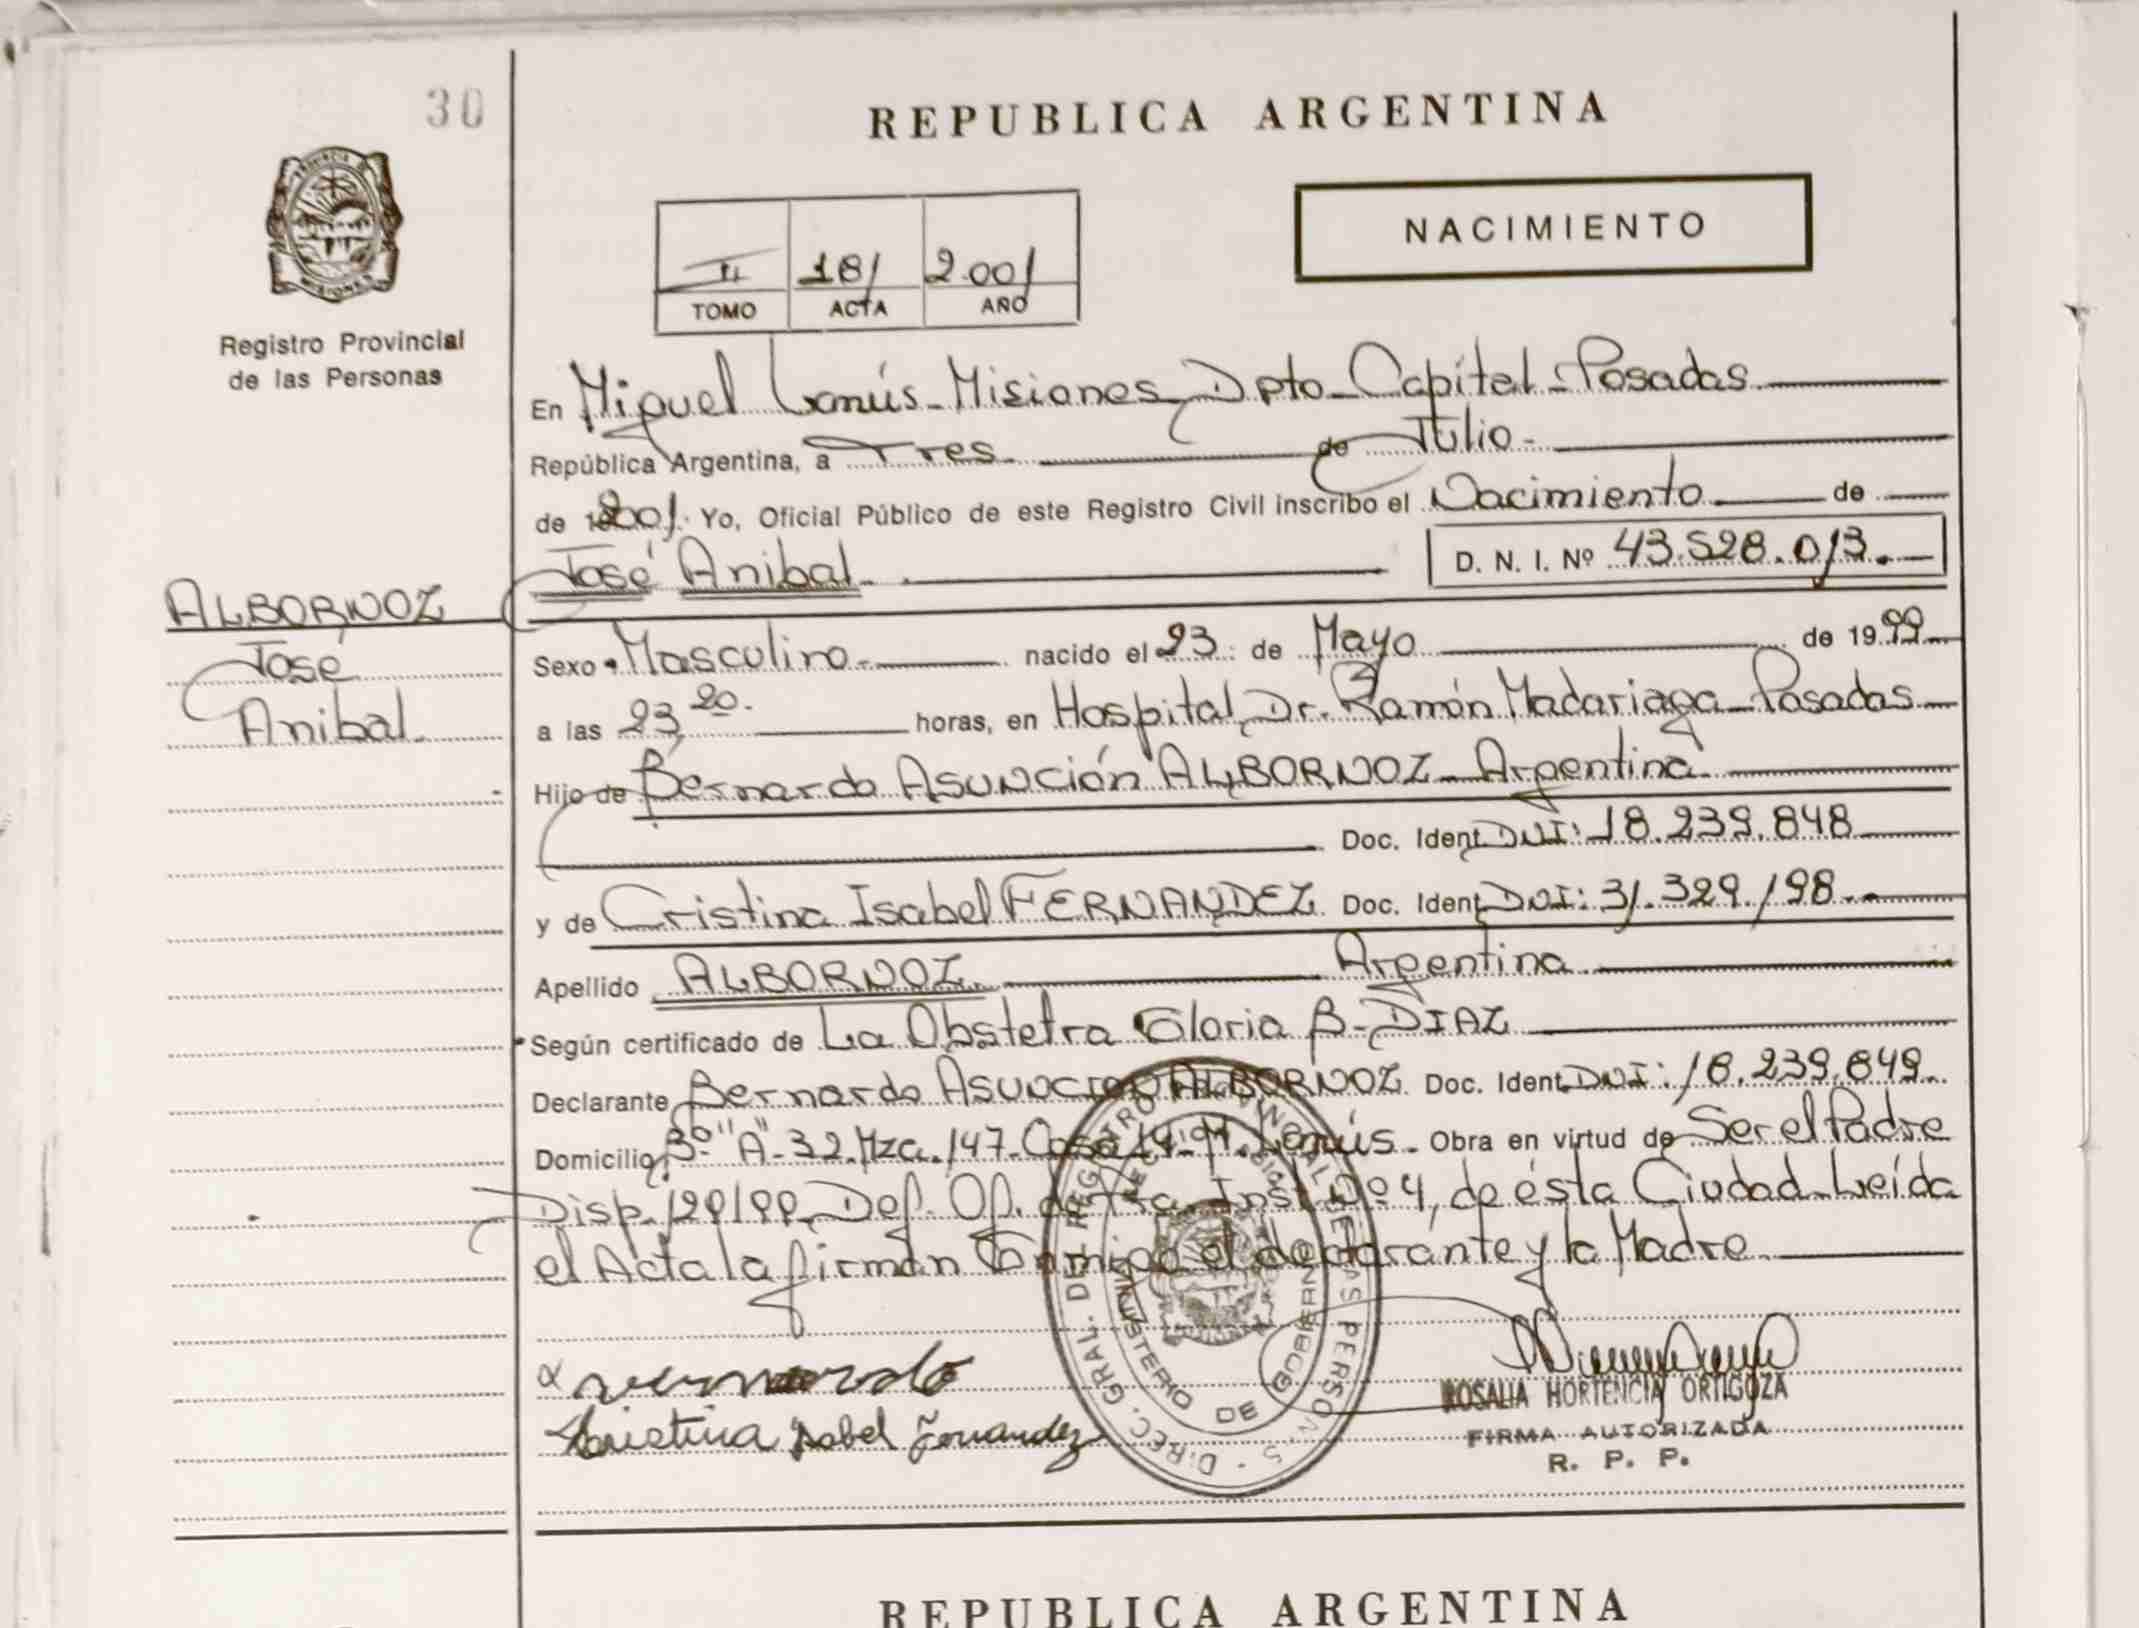 30
REPUBLICA ARGENTINA
NACIMIENTO
II 181 2.001
TOMO ACTA AÑO
Registro Provincial
de las Personas
En Miguel Lanús - Misiones, Dpto - Capital - Posadas
República Argentina, a Tres de Julio -
de 2001. Yo, Oficial Público de este Registro Civil inscribo el Nacimiento de
José Anibal D. N. I. Nº 43.528.013.
ALBORNOZ
José
Anibal
Sexo Masculino nacido el 23 de Mayo de 1999
a las 23,20. horas, en Hospital Dr. Ramón Madariaga - Posadas
Hijo de Bernardo Asunción ALBORNOZ - Argentina
Doc. Ident DNI: 18.239.848
y de Cristina Isabel FERNANDEZ Doc. Ident DNI: 31.329.198
Apellido ALBORNOZ Argentina
Según certificado de La Obstetra Gloria B. DIAZ
Declarante Bernardo Asunción ALBORNOZ Doc. Ident DNI: 18.239.849.
Domicilio 3º "A" - 32. Mza. 147 - Casa 14 - M. Lanús - Obra en virtud de Ser el Padre
Disp. 129/99 - Def. Of. de Inst Nº 4, de ésta Ciudad - Leída
el Acta la firman Conmigo el declarante y la Madre
DIREC. GRAL. DEL REGISTRO PROVINCIAL DE LAS PERSONAS
MINISTERIO DE GOBIERNO
Cristina Isabel Fernandez
ROSALIA HORTENCIA ORTIGOZA
FIRMA AUTORIZADA
R. P. P.
REPUBLICA ARGENTINA